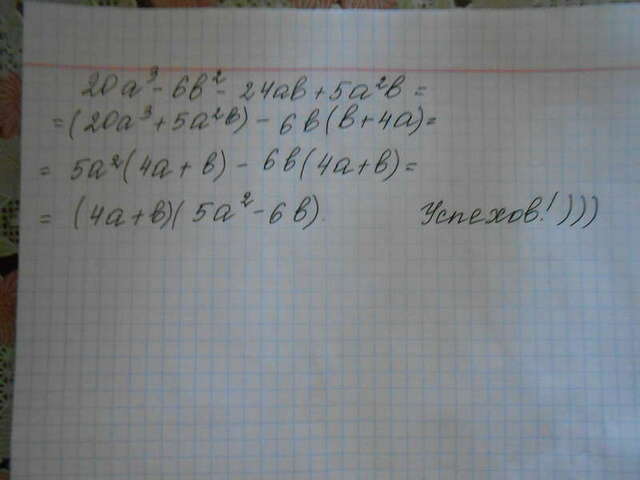 20a³ - 6b² - 24ab + 5a²b =
= (20a³ + 5a²b) - 6b(b + 4a) =
= 5a²(4a + b) - 6b(4a + b) =
= (4a + b)(5a² - 6b). Успехов! )))